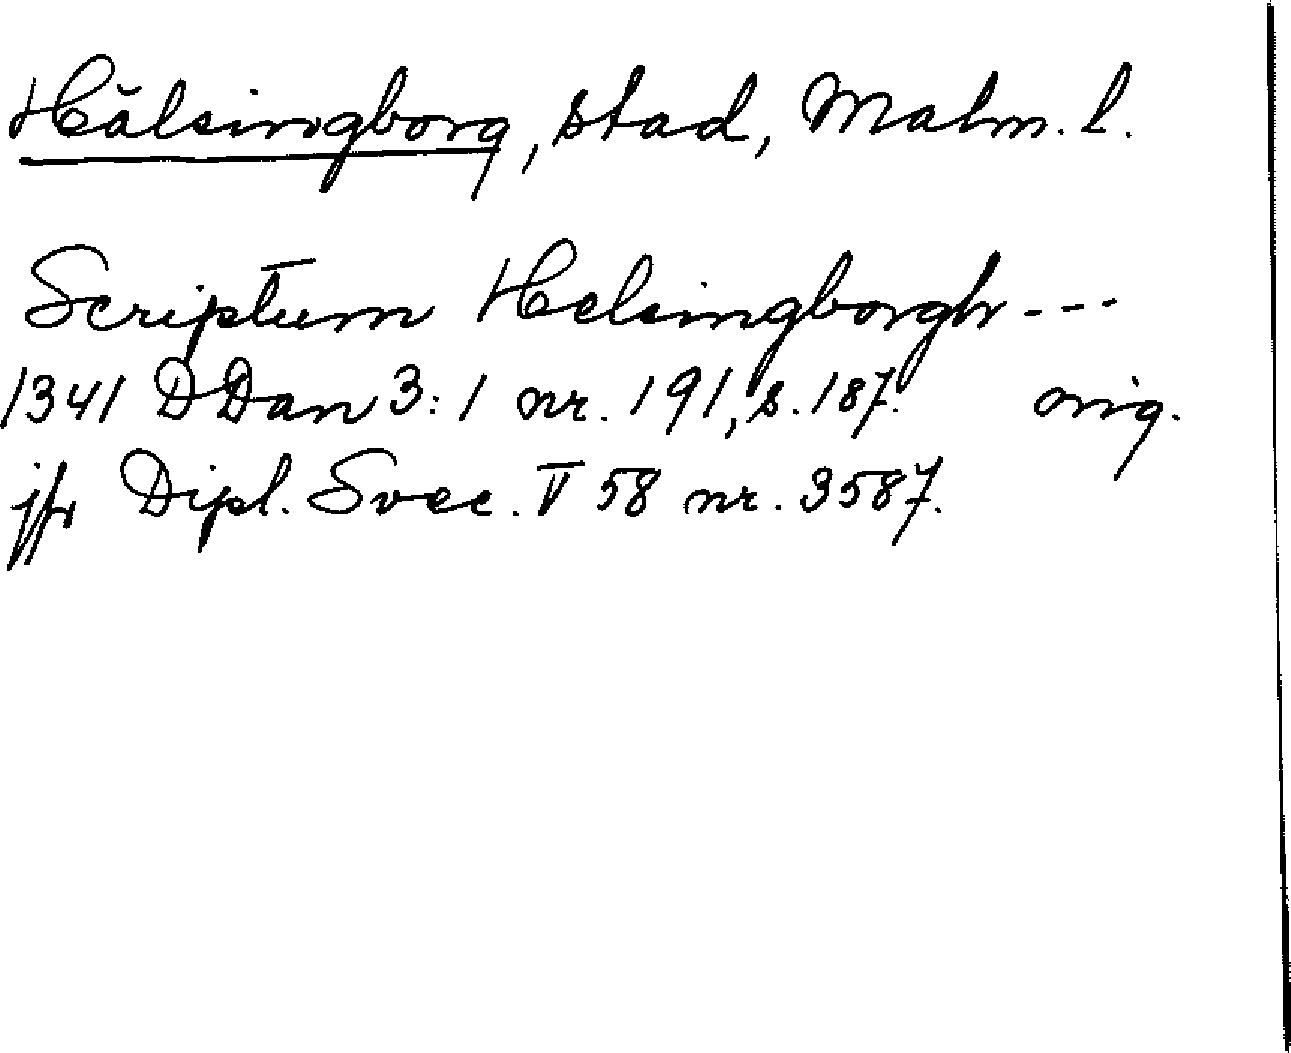 Hälsingborg, stad, Malm. l.
Scriptum Helsingborgh ---
1341 DDan 3:1 nr. 191, s. 187. orig.
jfr Dipl. Svec. V 58 nr. 3587.